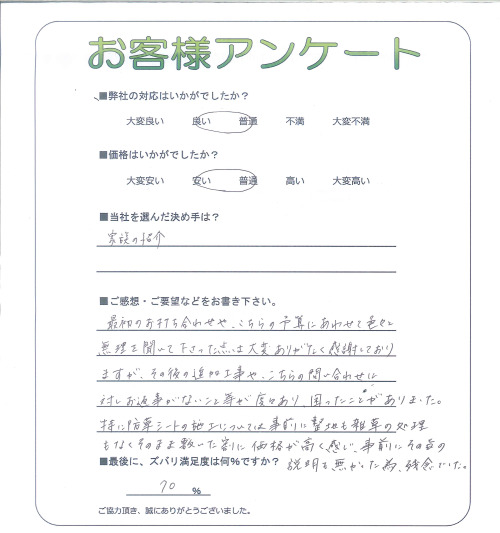 お客様アンケート
■弊社の対応はいかがでしたか？
大変良い 良い 普通 不満 大変不満
■価格はいかがでしたか？
大変安い 安い 普通 高い 大変高い
■当社を選んだ決め手は？
家族の紹介
■ご感想・ご要望などをお書き下さい。
最初のお打ち合わせや、こちらの予算にあわせて色々と
無理を聞いて下さった点は大変ありがたく感謝しており
ますが、その後の追加工事や、こちらの問い合わせに
対しお返事がないこと等が度々あり、困ったことがありました。
特に防草シートの施工については事前に整地も雑草の処理
もなくそのまま敷いた割に価格が高く感じ、事前にその旨の
説明も無かった為、残念でした。
■最後に、ズバリ満足度は何%ですか？
70 %
ご協力頂き、誠にありがとうございました。